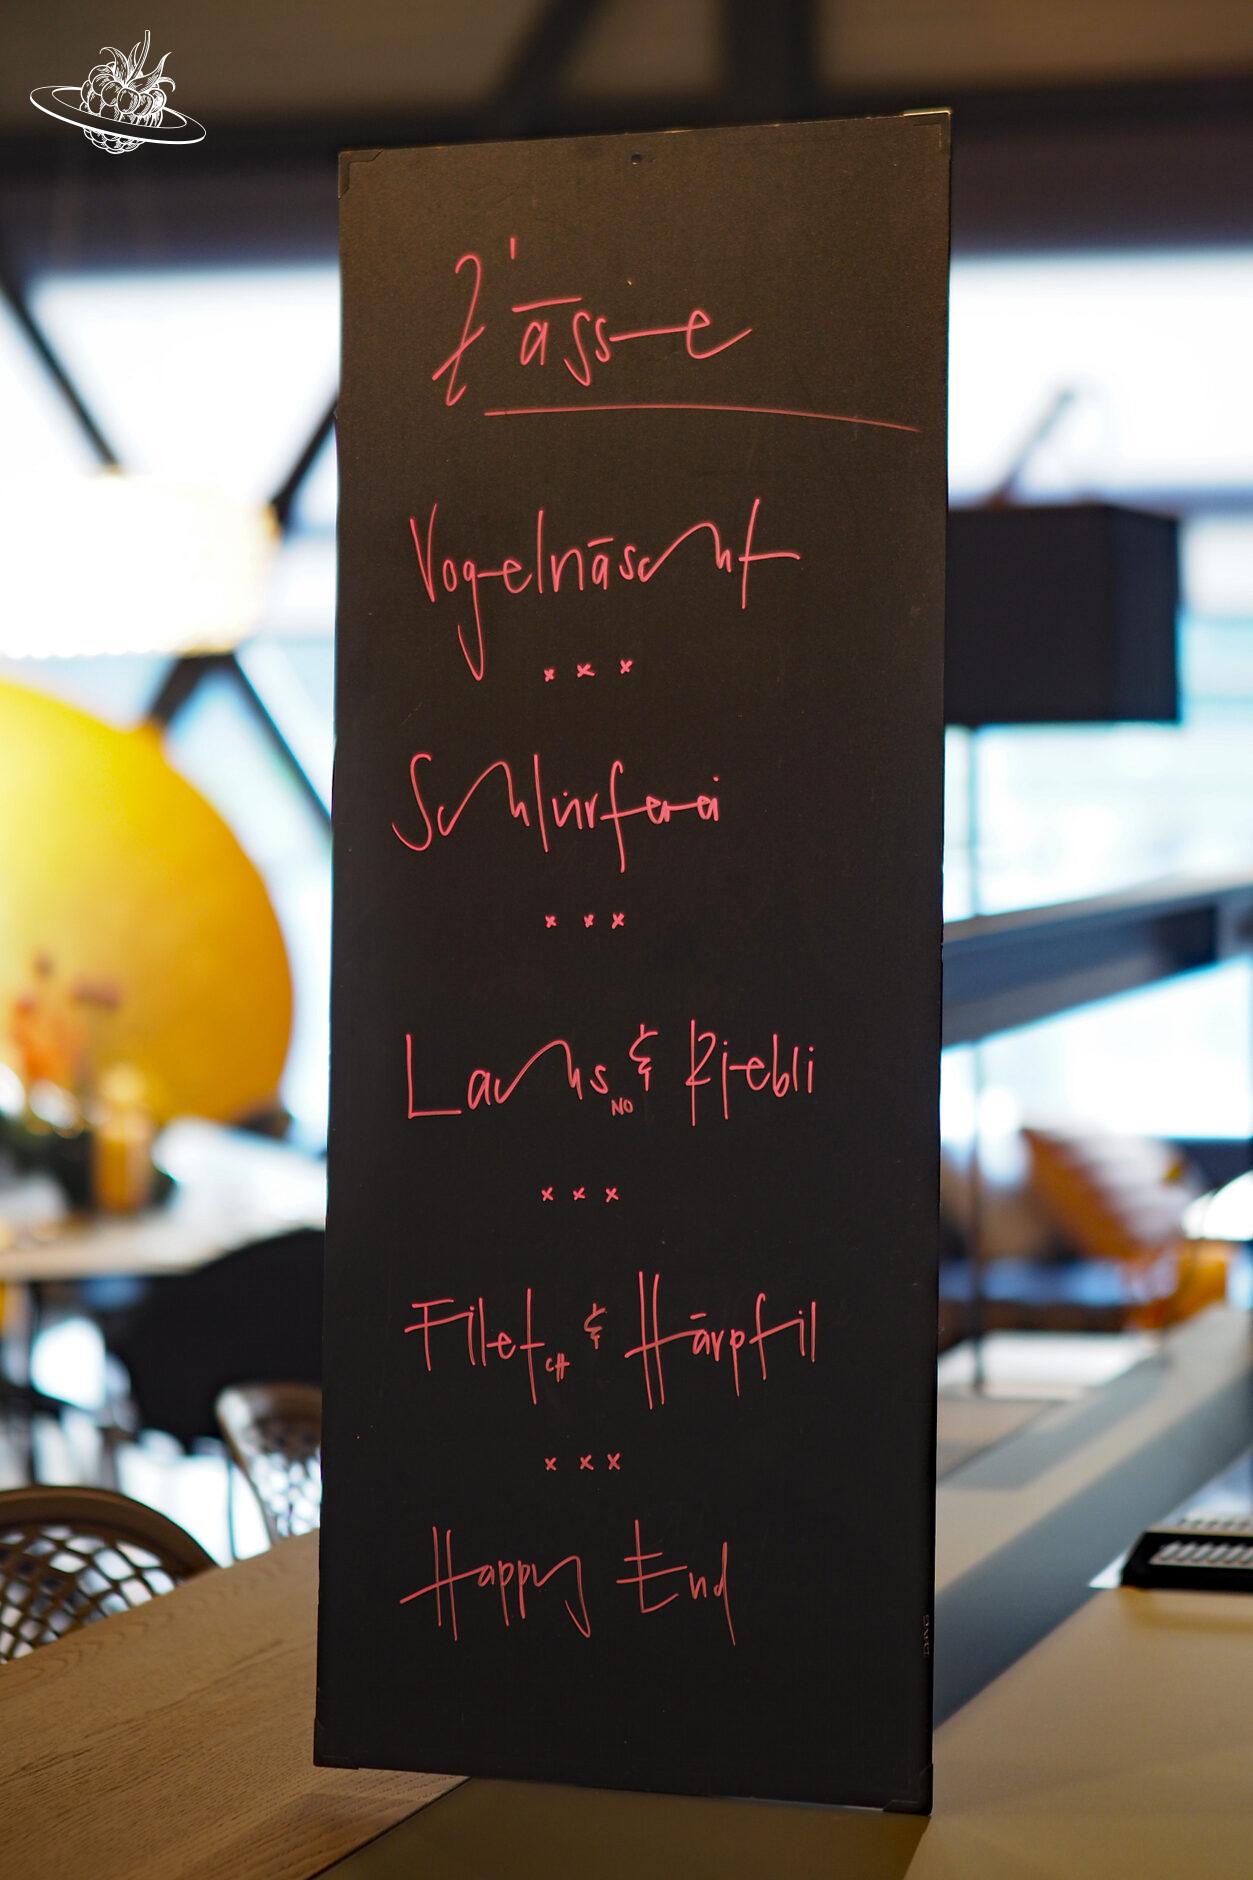 z'ässe
Vogelnäscht
x x x
Schlürferei
x x x
Lachs NO & Rjebli
x x x
Filet CH & Härpfil
x x x
Happy End